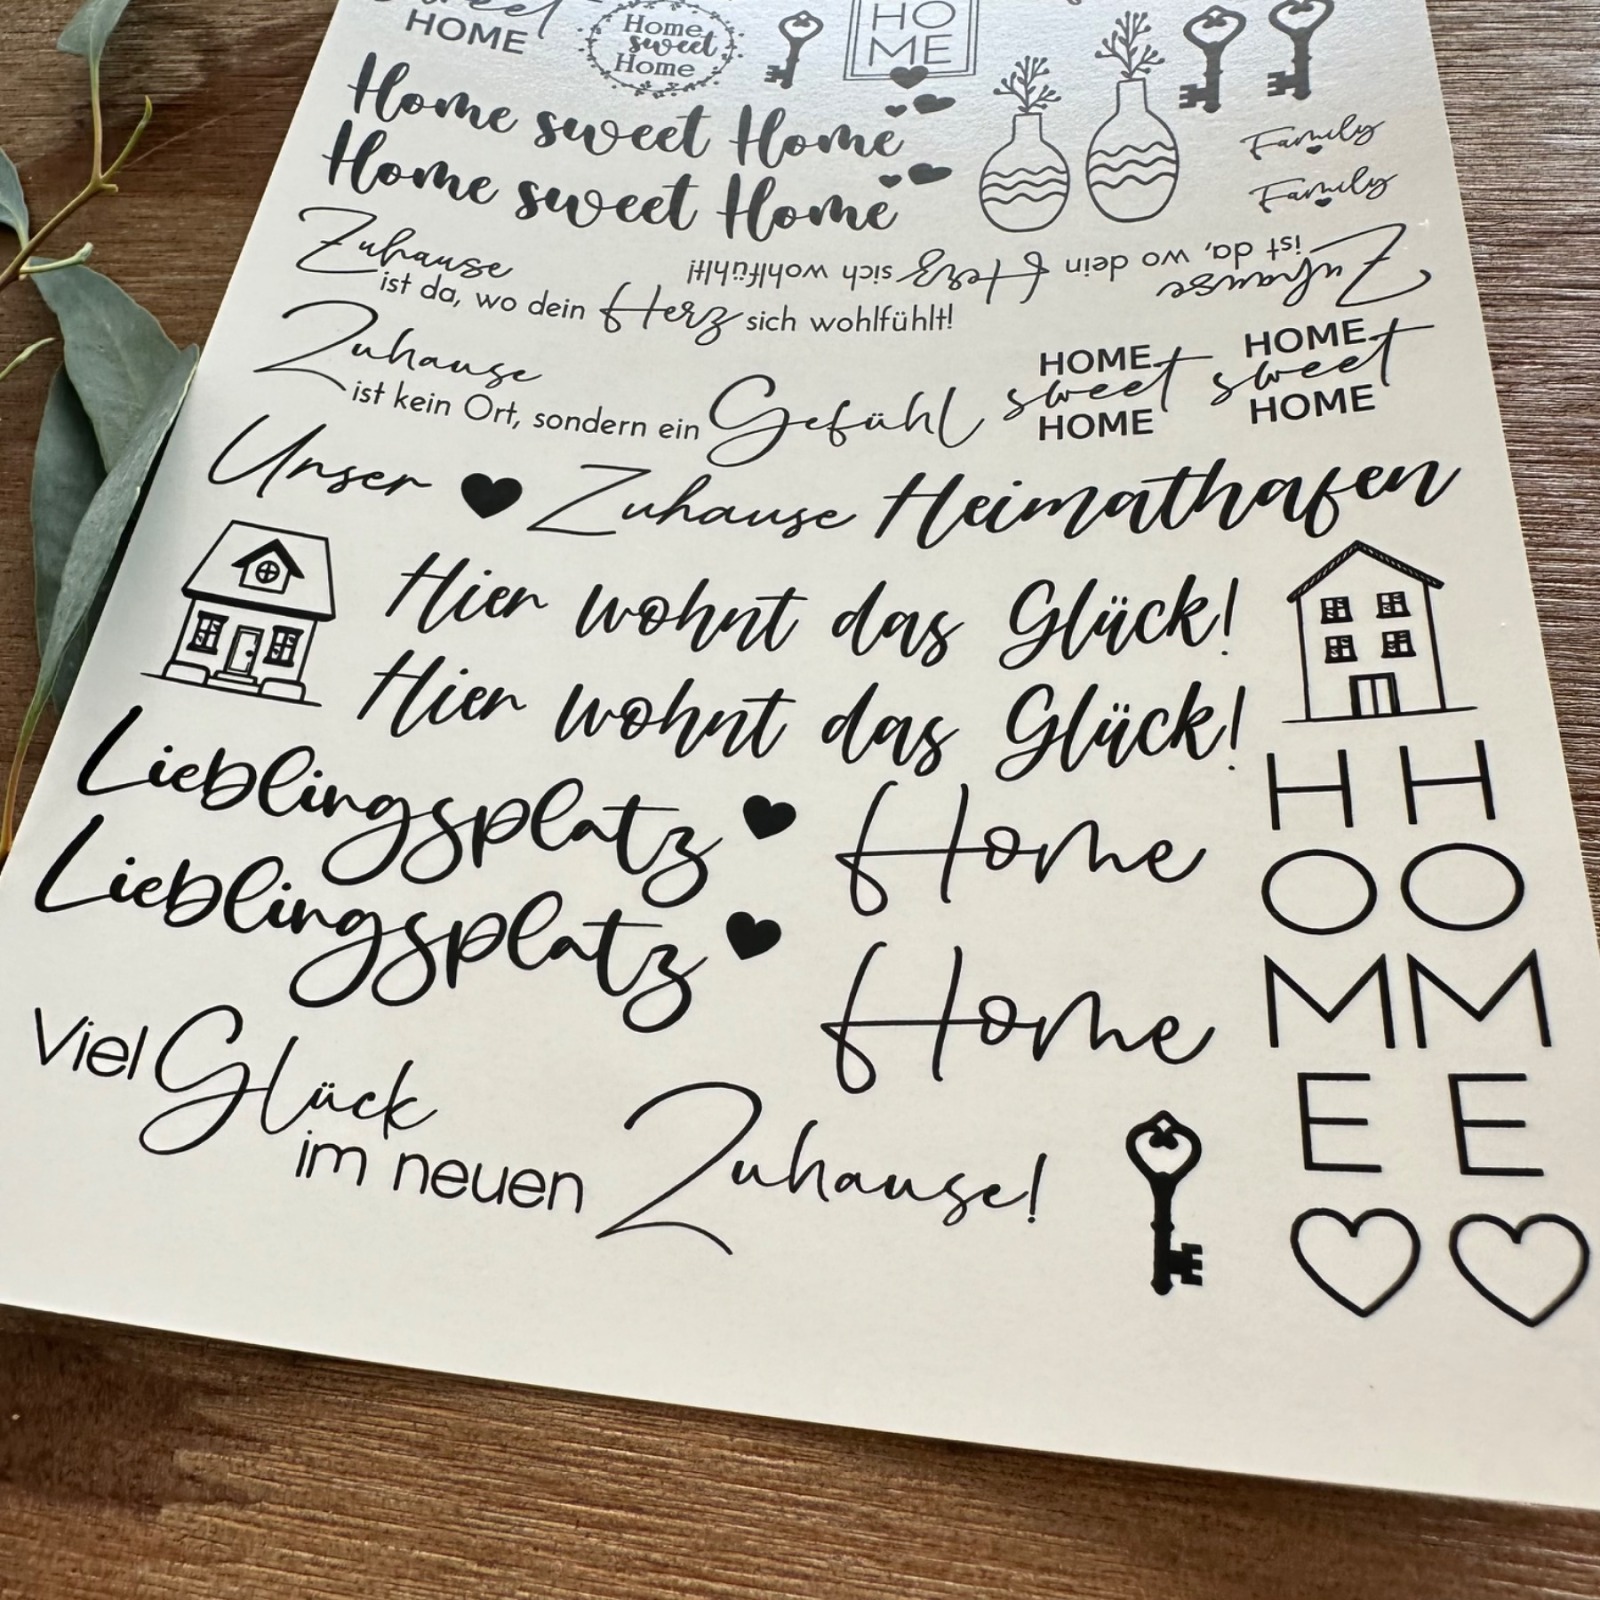 sweet
HOME
Home
sweet
Home
HO
ME
Home sweet Home
Home sweet Home
Family
Family
Zuhause
ist da, wo dein Herz sich wohlfühlt!
Zuhause
ist da, wo dein Herz sich wohlfühlt!
Zuhause
ist kein Ort, sondern ein Gefühl
HOME
sweet
HOME
HOME
sweet
HOME
Unser Zuhause
Heimathafen
Hier wohnt das Glück!
Hier wohnt das Glück!
Lieblingsplatz
Home
Lieblingsplatz
Home
H H
O O
M M
E E
Viel Glück
im neuen Zuhause!